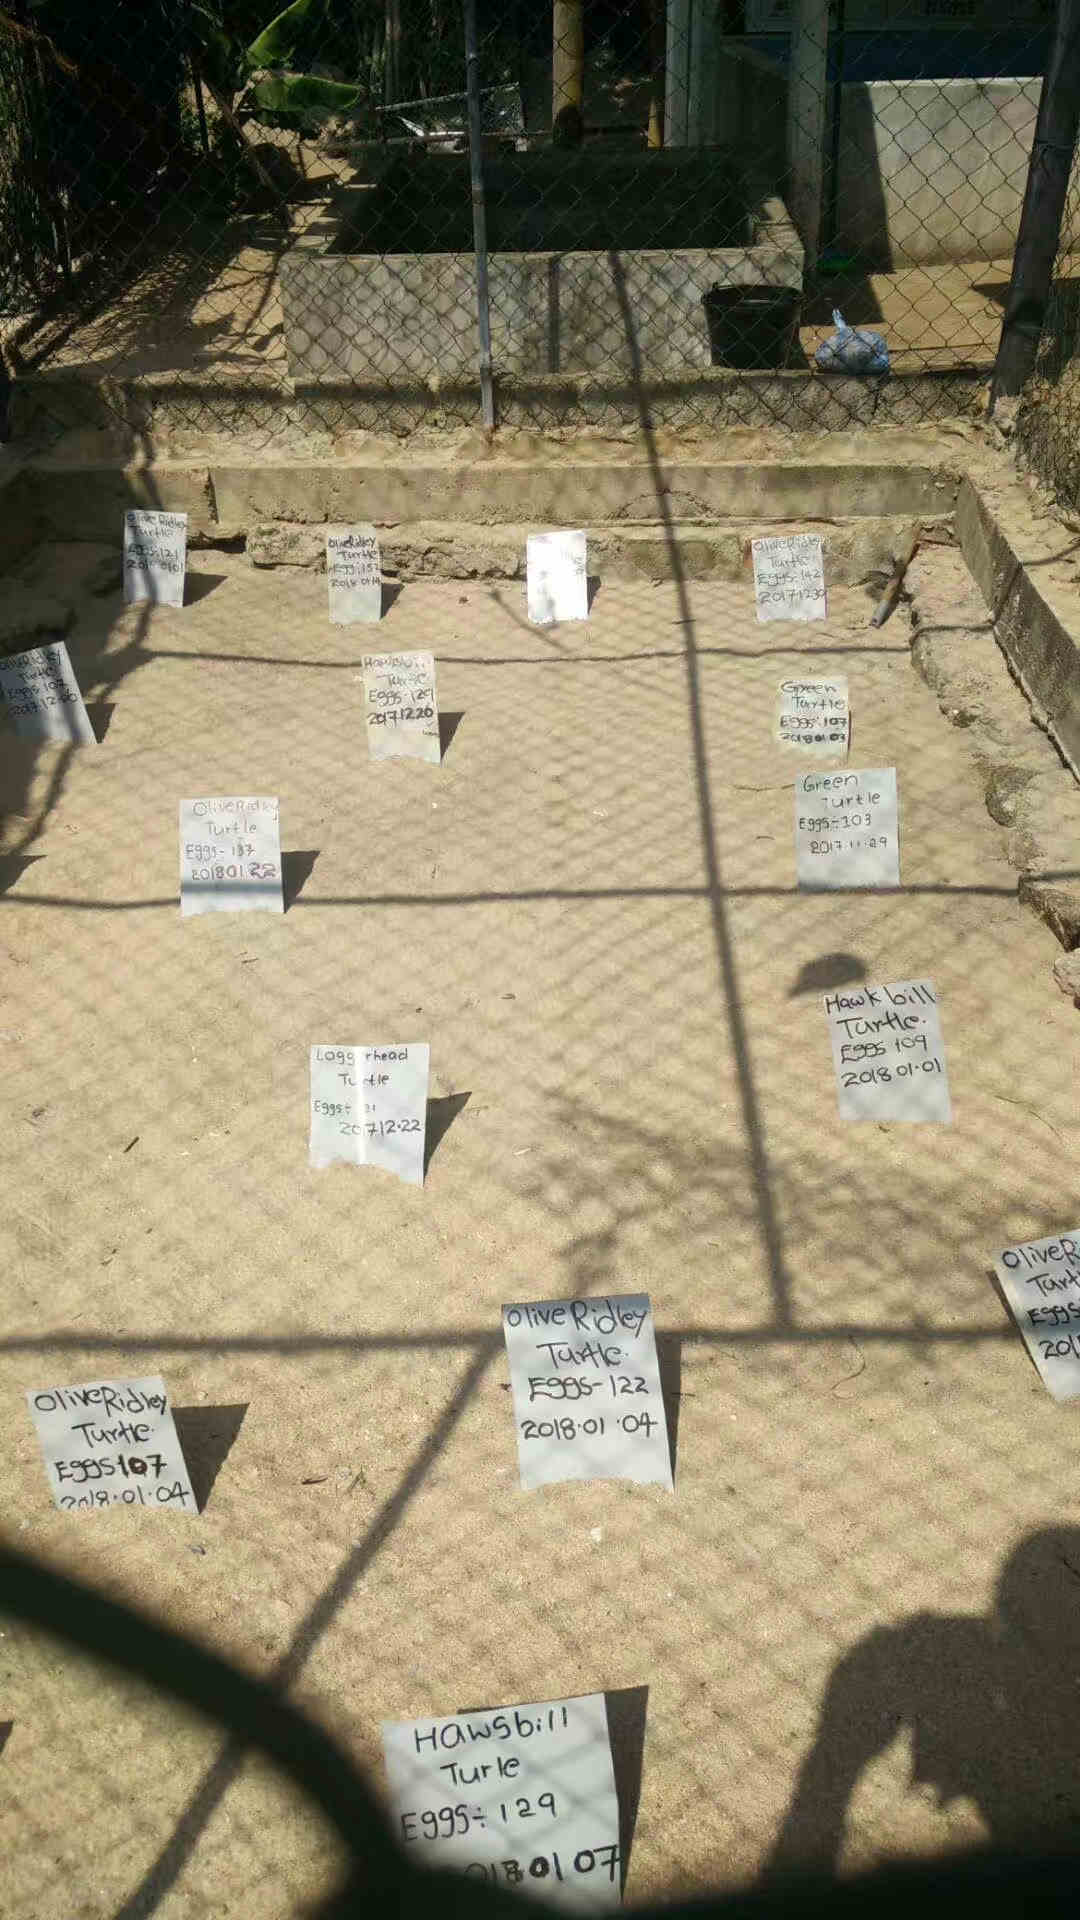 Olive Ridley
Turtle
Eggs:121
OliveRidley
Turtle
Egg:152
2018 01 14
OliveRidley
Turtle
Eggs:142
20171230
OliveRidley
Turtle
Eggs 107
Hawkbill
Turtle
Eggs-129
20171220
Green
Turtle
Eggs:107
2018 01 03
Green
Turtle
Eggs÷103
2017.11.29
OliveRidley
Turtle
Eggs-137
20180122
Hawkbill
Turtle.
Eggs 109
2018 01.01
Loggerhead
Turtle
Eggs÷
201712.22
OliveRi
Turt
Eggs
201
OliveRidley
Turtle.
Eggs-122
2018.01.04
OliveRidley
Turtle.
Eggs 107
2018.01.04
Hawsbill
Turle
Eggs÷129
0180107